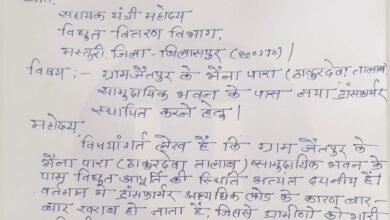 सहायक यंत्री महोदय
विद्युत वितरण विभाग,
मस्तुरी, जिला - बिलासपुर (छ०ग०) |
विषय :- ग्राम जैतपुर के भैंना पारा (ठाकुरदेवा तालाब)
सामुदायिक भवन के पास नया ट्रांसफार्मर
स्थापित करने हेतु।
महोदय,
विषयांगत लेख है कि ग्राम जैतपुर के
भैंना पारा (ठाकुरदेवा तालाब) सामुदायिक भवन के
पास विद्युत आपूर्ति की स्थिति अत्यंत दयनीय है।
वर्तमान में ट्रांसफार्मर अत्यधिक लोड के कारण बार-
बार खराब हो जाता है, जिससे ग्रामीणों को भारी